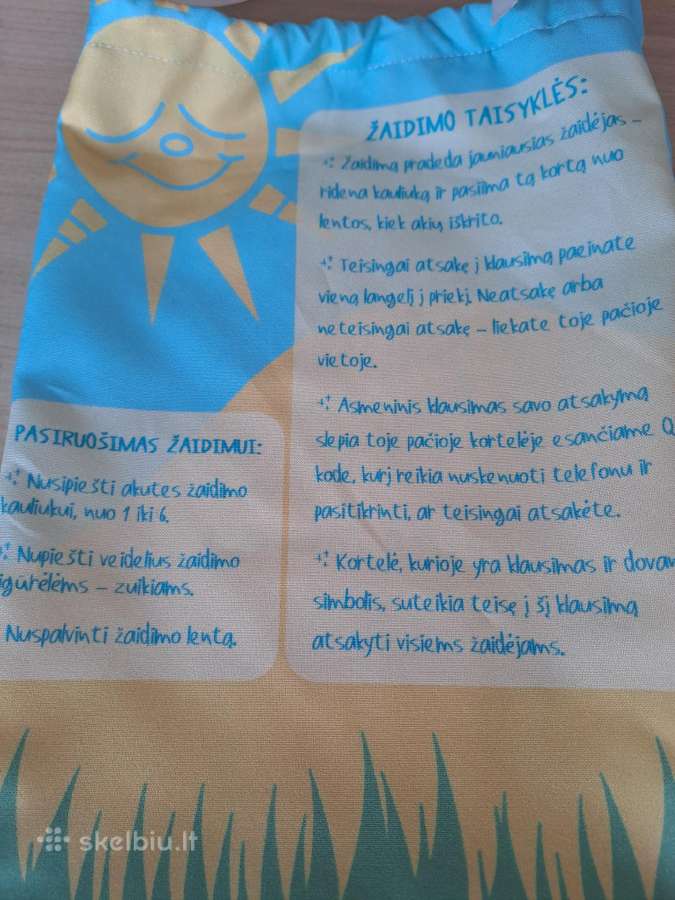 ŽAIDIMO TAISYKLĖS:
Žaidimą pradeda jauniausias žaidėjas –
ridena kauliuką ir pasiima tą kortą nuo
lentos, kiek akių iškrito.
Teisingai atsakę į klausimą paeinate
vieną langelį į priekį. Neatsakę arba
neteisingai atsakę – liekate toje pačioje
vietoje.
Asmeninis klausimas savo atsakymą
slepia toje pačioje kortelėje esančiame Q
kode, kurį reikia nuskenuoti telefonu ir
pasitikrinti, ar teisingai atsakėte.
Kortelė, kurioje yra klausimas ir dovan
simbolis, suteikia teisę į šį klausimą
atsakyti visiems žaidėjams.
PASIRUOŠIMAS ŽAIDIMUI:
Nusipiešti akutes žaidimo
kauliukui, nuo 1 iki 6.
Nupiešti veidelius žaidimo
igūrėlėms – zuikiams.
Nuspalvinti žaidimo lentą.
skelbiu.lt